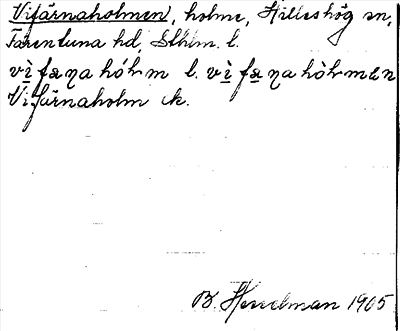 Vifärnaholmen, holme, Hilleshög sn,
Färentuna hd, Sthlm. l.
vìfæṇahólm l. vìfæṇahòlmen
Vifärnaholm ek.
B. Hesselman 1905